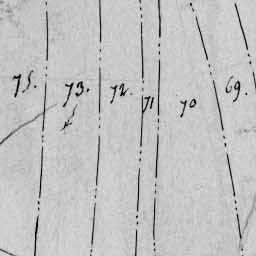 75. 73. 72. 71 70 69.